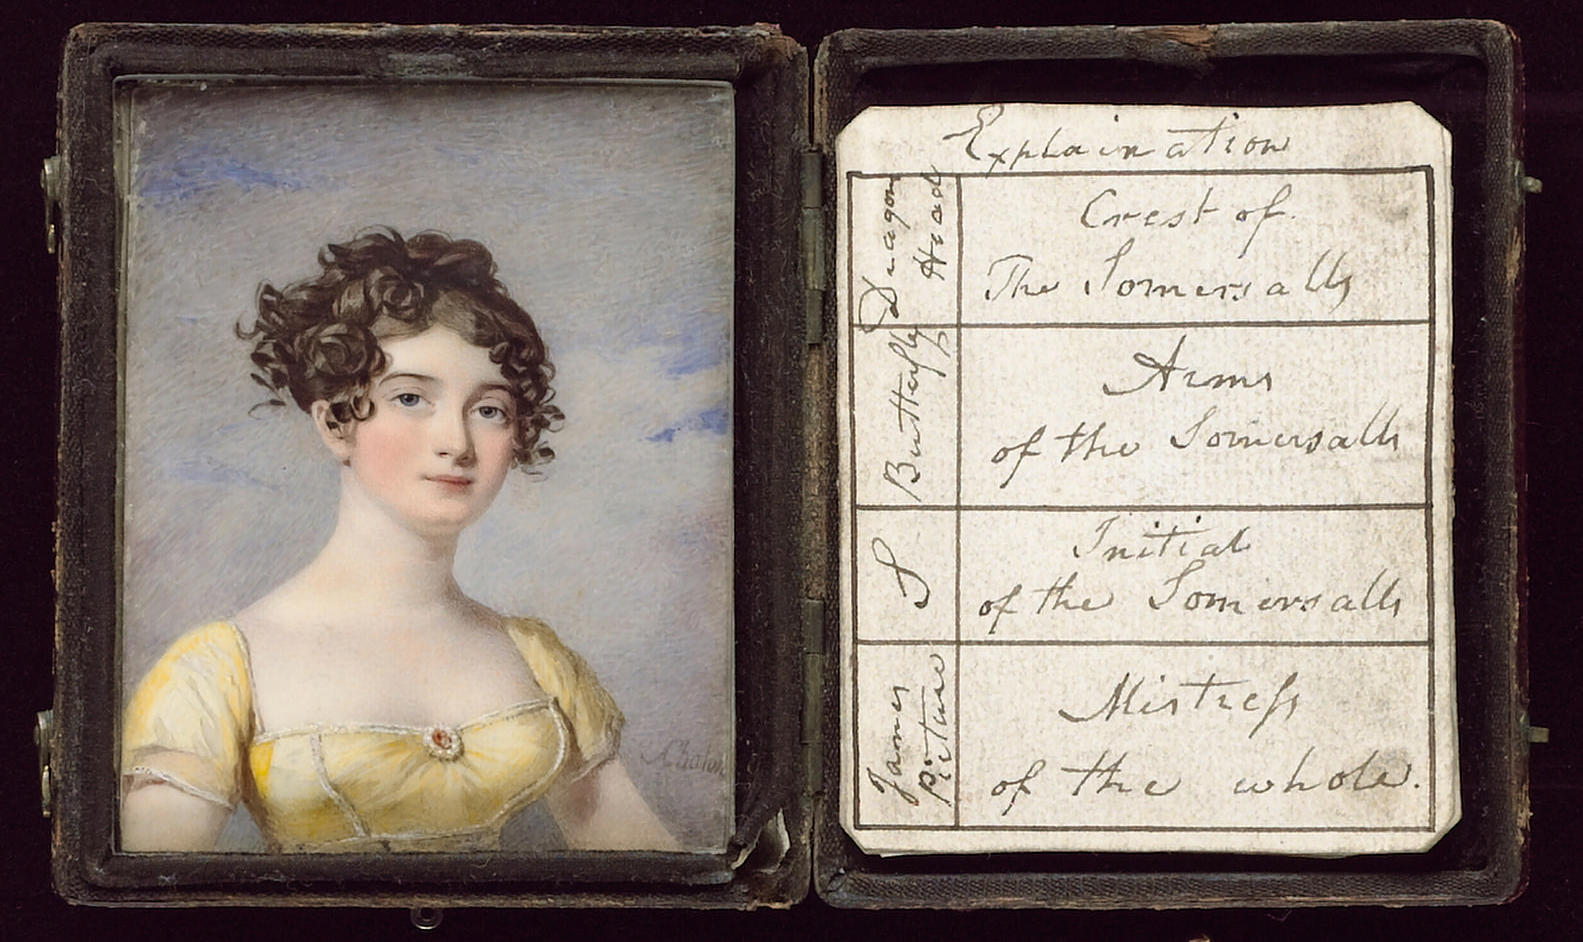 Explaination
Dragon
Head
Crest of
The Somersalls
Butterfly
Arms
of the Somersalls
S
Initial
of the Somersalls
James
Picture
Mistress
of the whole.
AChalon